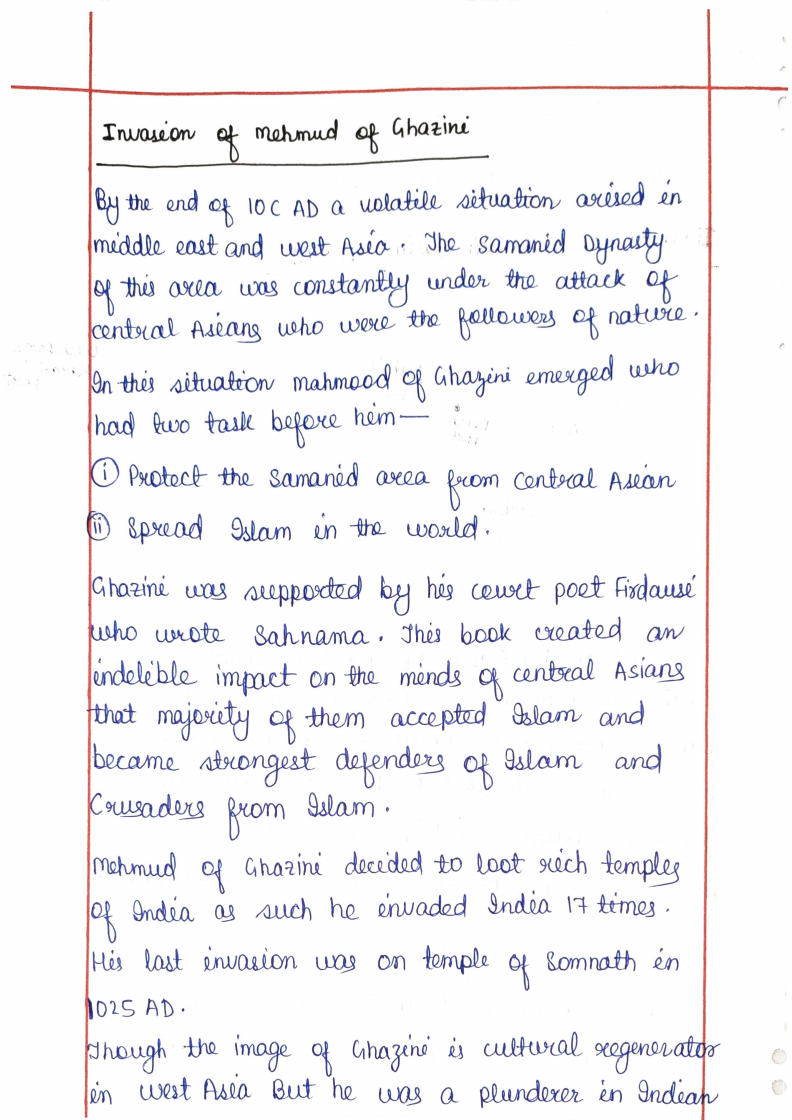 Invasion of Mehmud of Ghazini
By the end of 10C AD a volatile situation arised in
middle east and west Asia. The Samanid Dynasty
of this area was constantly under the attack of
central Asians who were the followers of nature.
In this situation mahmood of Ghazini emerged who
had two task before him—
(i) Protect the Samanid area from central Asian
(ii) Spread Islam in the world.
Ghazini was supported by his court poet Firdausi
who wrote Sahnama. This book created an
indelible impact on the minds of central Asians
that majority of them accepted Islam and
became strongest defenders of Islam and
Crusaders from Islam.
Mehmud of Ghazini decided to loot rich temples
of India as such he invaded India 17 times.
His last invasion was on temple of Somnath in
1025 AD.
Though the image of Ghazini is cultural regenerator
in west Asia But he was a plunderer in Indian